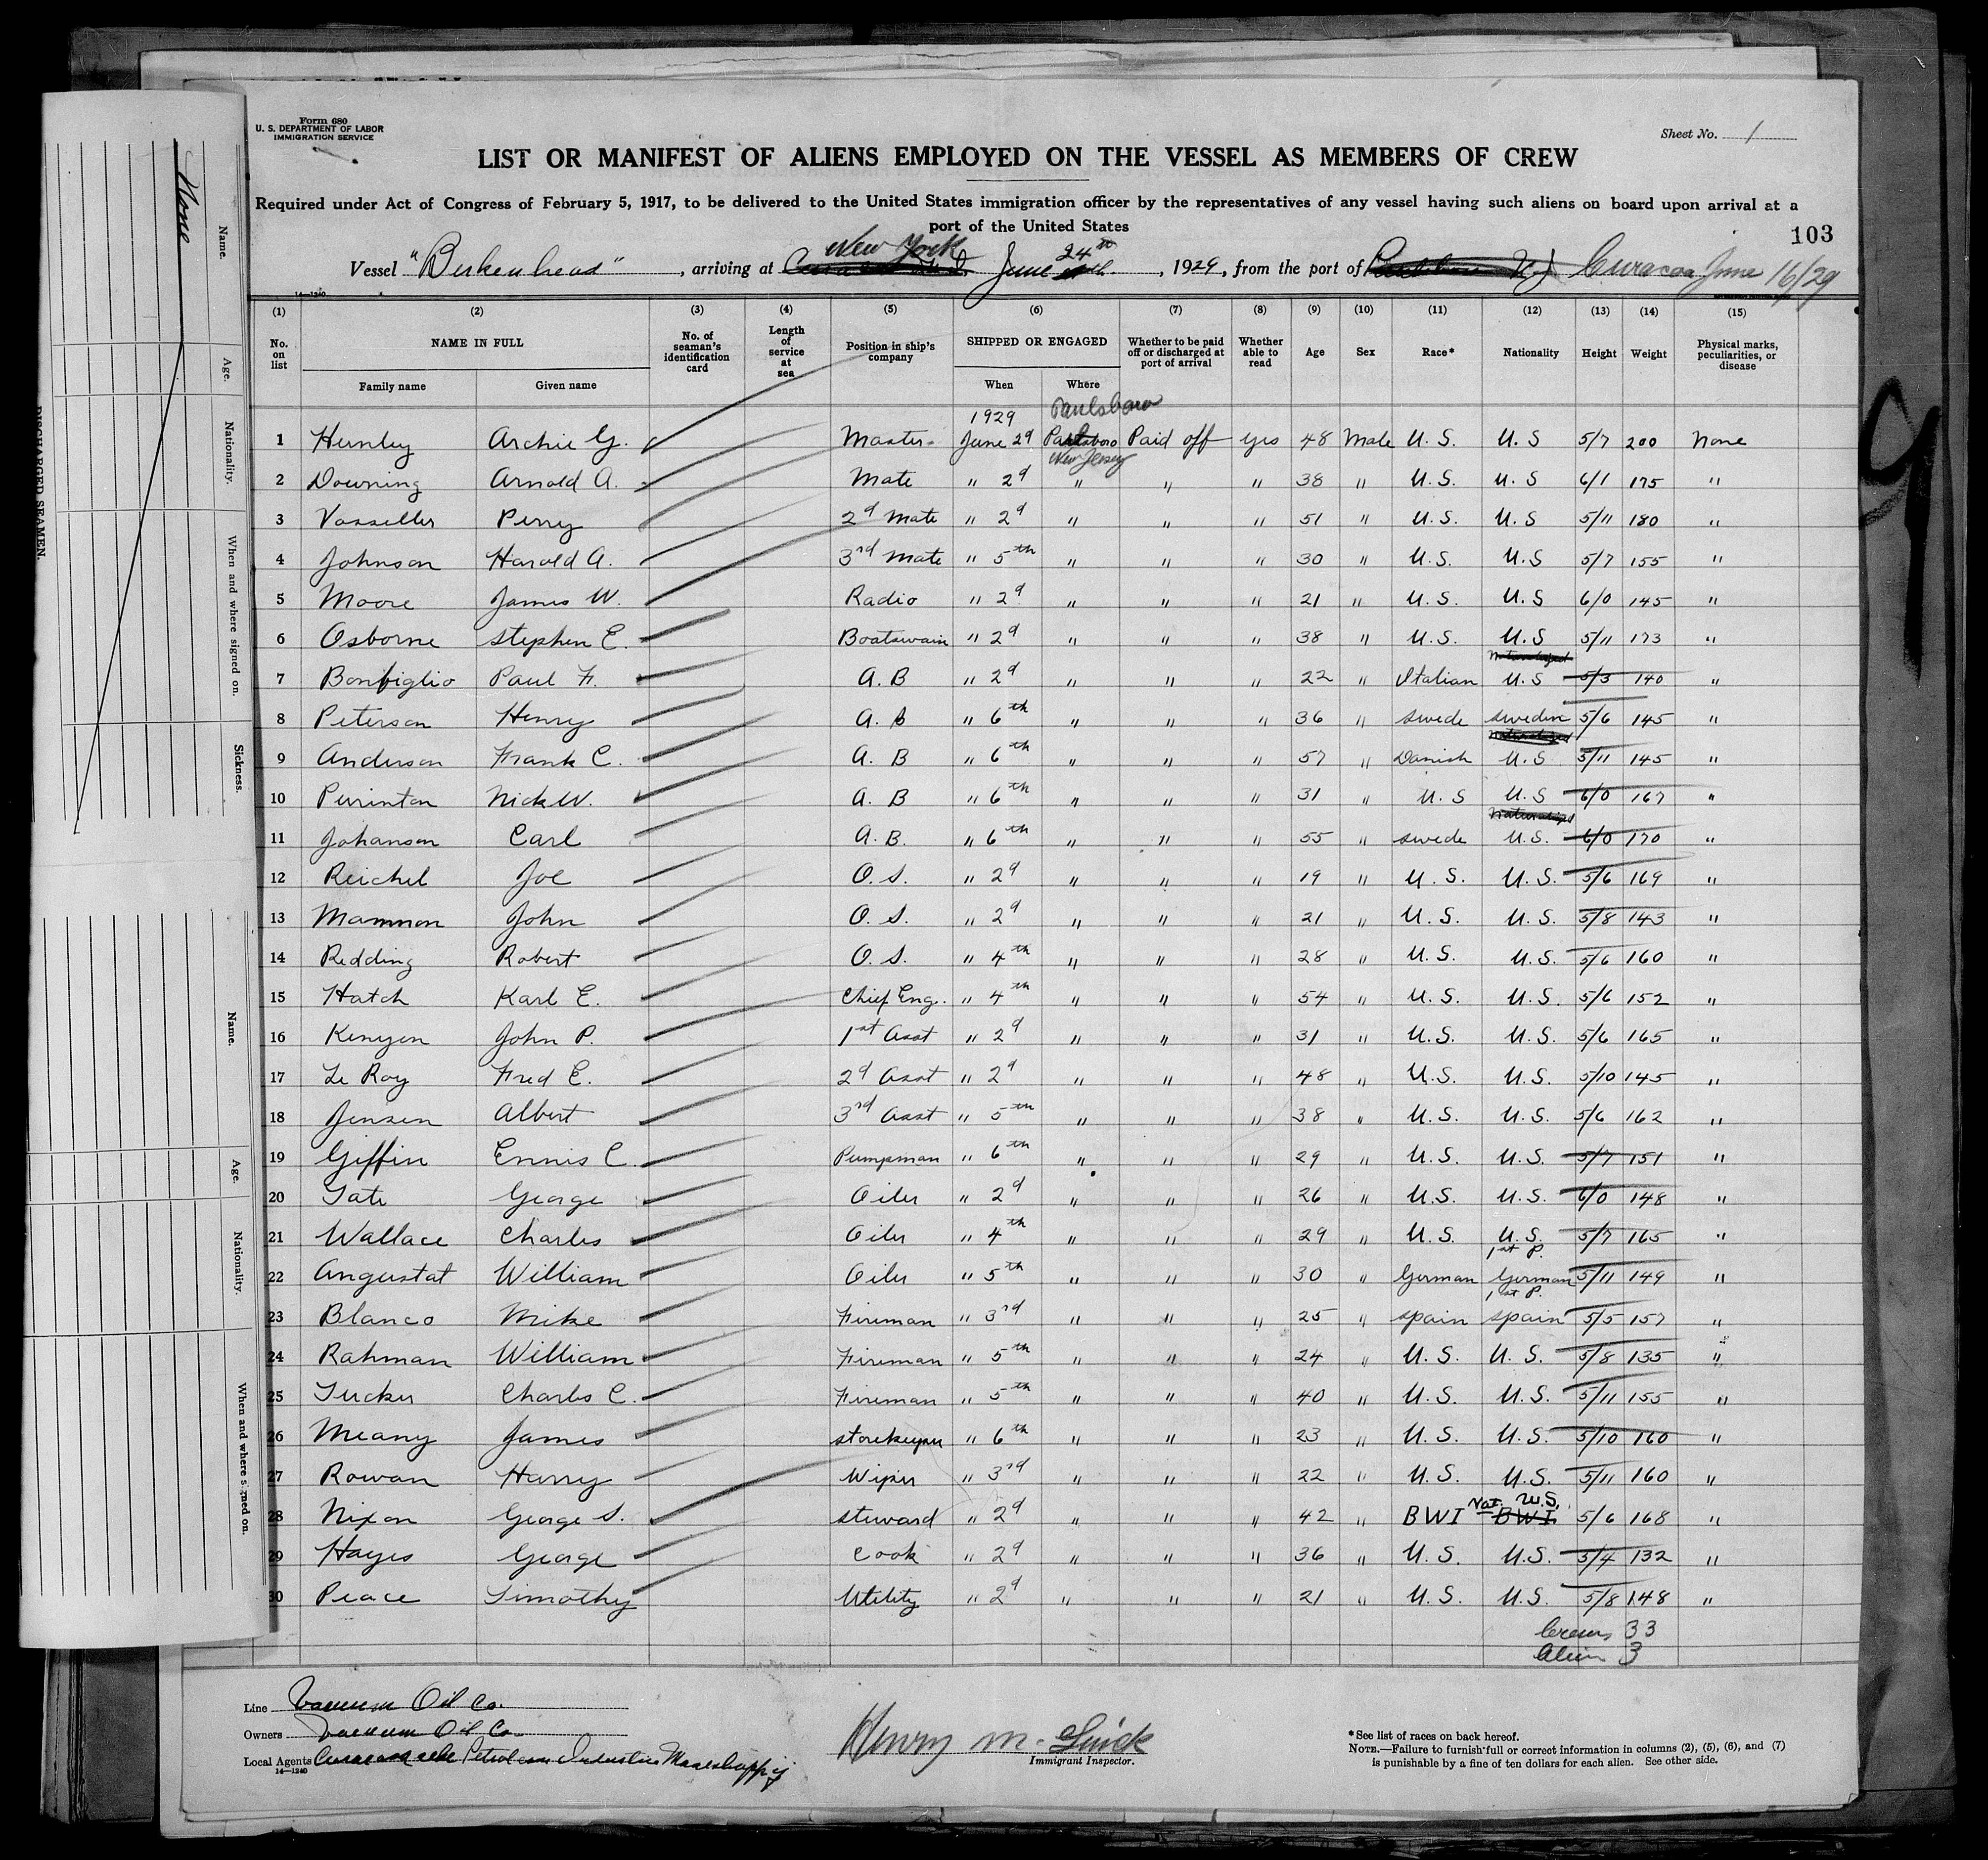 Form 680
U. S. DEPARTMENT OF LABOR
IMMIGRATION SERVICE
Sheet No. 1
LIST OR MANIFEST OF ALIENS EMPLOYED ON THE VESSEL AS MEMBERS OF CREW
Required under Act of Congress of February 5, 1917, to be delivered to the United States immigration officer by the representatives of any vessel having such aliens on board upon arrival at a
port of the United States
103
New York 24th
Vessel "Birkenhead", arriving at June, 1929, from the port of Curacoa June 16/29
14—1240
(1) (2) (3) (4) (5) (6) (7) (8) (9) (10) (11) (12) (13) (14) (15)
No. on list NAME IN FULL No. of seaman's identification card Length of service at sea Position in ship's company SHIPPED OR ENGAGED Whether to be paid off or discharged at port of arrival Whether able to read Age Sex Race* Nationality Height Weight Physical marks, peculiarities, or disease
Family name Given name When Where
1929 Paulsboro
1 Hunley Archie G. Master June 2d Paulsboro Paid off yes 48 Male U.S. U.S 5/7 200 None
New Jersey
2 Downing Arnold A. Mate " 2d " " " 38 " U.S. U.S 6/1 175 "
3 Vosseller Perry 2d Mate " 2d " " " 51 " U.S. U.S 5/11 180 "
4 Johnson Harold A. 3rd Mate " 5th " " " 30 " U.S. U.S 5/7 155 "
5 Moore James W. Radio " 2d " " " 21 " U.S. U.S 6/0 145 "
6 Osborne Stephen E. Boatswain " 2d " " " 38 " U.S. U.S 5/11 173 "
Naturalized
7 Bonfiglio Paul F. A.B " 2d " " " 22 " Italian U.S 5/3 140 "
8 Peterson Henry A.B " 6th " " " 36 " Swede Sweden 5/6 145 "
Naturalized
9 Anderson Frank C. A.B " 6th " " " 57 " Danish U.S 5/11 145 "
10 Purinton Nick W. A.B " 6th " " " 31 " U.S U.S 6/0 167 "
Naturalized
11 Johanson Carl A.B. " 6th " " " 55 " Swede U.S. 6/0 170 "
12 Reichel Joe O.S. " 2d " " " 19 " U.S. U.S. 5/6 169 "
13 Mammon John O.S. " 2d " " " 21 " U.S. U.S. 5/8 143 "
14 Redding Robert O.S. " 4th " " " 28 " U.S. U.S. 5/6 160 "
15 Hatch Karl E. Chief Eng. " 4th " " " 54 " U.S. U.S. 5/6 152 "
16 Kenyon John P. 1st Asst " 2d " " " 31 " U.S. U.S. 5/6 165 "
17 Le Roy Fred E. 2d Asst " 2d " " " 48 " U.S. U.S. 5/10 145 "
18 Jensen Albert 3rd Asst " 5th " " " 38 " U.S. U.S. 5/6 162 "
19 Giffin Ennis C. Pumpman " 6th " " " 29 " U.S. U.S. 5/7 151 "
20 Tate George Oiler " 2d " " " 26 " U.S. U.S. 6/0 148 "
21 Wallace Charles Oiler " 4th " " " 29 " U.S. U.S. 5/7 165 "
1st P.
22 Angustat William Oiler " 5th " " " 30 " German German 5/11 149 "
1st P.
23 Blanco Mike Fireman " 3rd " " " 25 " Spain Spain 5/5 157 "
24 Rahman William Fireman " 5th " " " 24 " U.S. U.S. 5/8 135 "
25 Tucker Charles C. Fireman " 5th " " " 40 " U.S. U.S. 5/11 155 "
26 Meany James Storekeeper " 6th " " " 23 " U.S. U.S. 5/10 160 "
27 Rowan Harry Wiper " 3rd " " " 22 " U.S. U.S. 5/11 160 "
Nat. U.S.
28 Nixon George S. Steward " 2d " " " 42 " BWI BWI 5/6 168 "
29 Hayes George Cook " 2d " " " 36 " U.S. U.S. 5/4 132 "
30 Peace Timothy Utility " 2d " " " 21 " U.S. U.S. 5/8 148 "
Crew 33
Alien 3
Line Vacuum Oil Co.
Owners Vacuum Oil Co.
Local Agents Petroleum Industrie Maatschappij
14—1240
Henry M.
Immigrant Inspector.
*See list of races on back hereof.
NOTE.—Failure to furnish full or correct information in columns (2), (5), (6), and (7)
is punishable by a fine of ten dollars for each alien. See other side.
None
Name.
Age.
Nationality.
When and where signed on.
Sickness.
DISCHARGED SEAMEN.
Name.
Age.
Nationality.
When and where signed on.